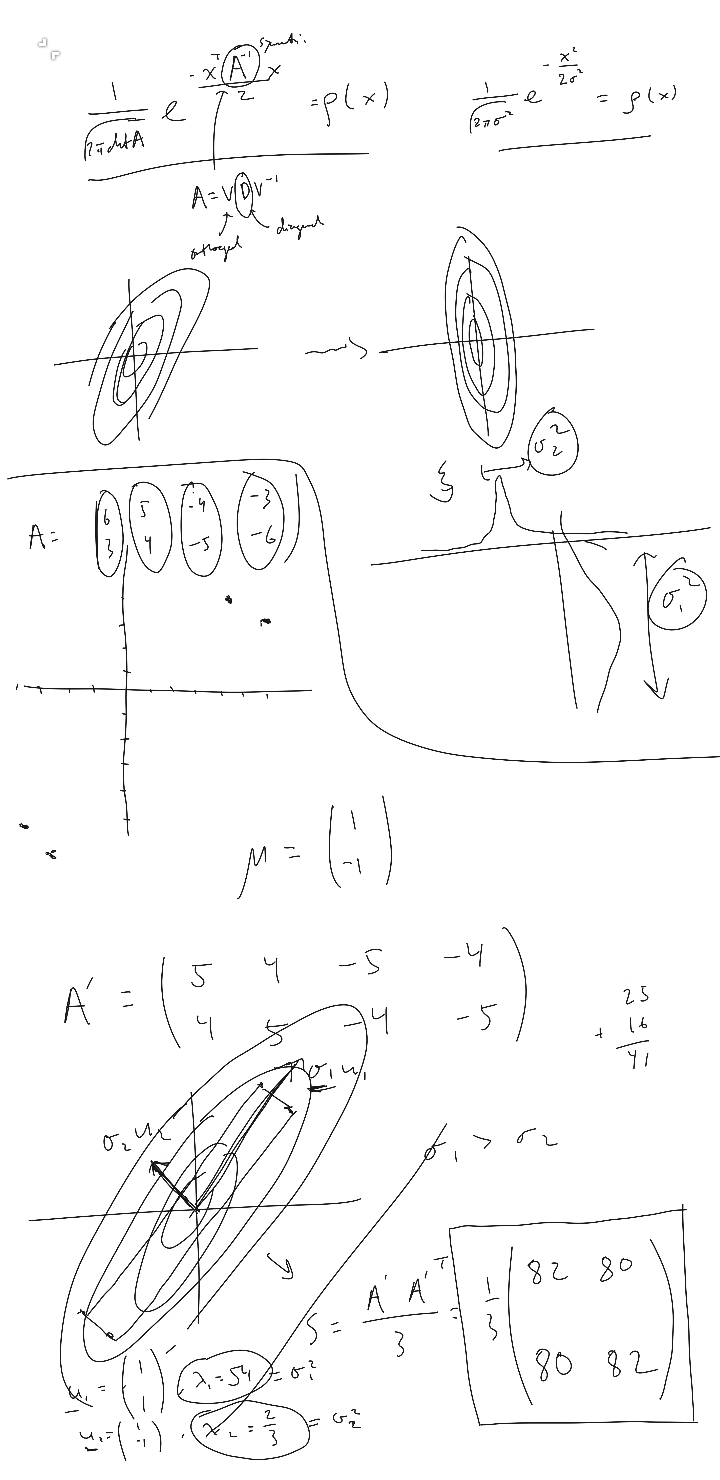 1/√(2π det A) e^(-xᵀ A⁻¹ x / 2) = ρ(x)
1/√(2πσ²) e^(-x²/2σ²) = ρ(x)
A = V D V⁻¹
diagonal
σ₂²
A = (6 5 -4 -3
3 4 -5 -6)
σ₁²
μ = (1
-1)
A' = (5 4 -5 -4
4 5 -4 -5)
25
+ 16
41
σ₁u₁
σ₂u₂
σ₁ > σ₂
S = A' A'ᵀ / 3 = 1/3 (82 80
80 82)
u₁ = (1
1), λ₁ = 54 = σ₁²
u₂ = (1
-1), λ₂ = 2/3 = σ₂²